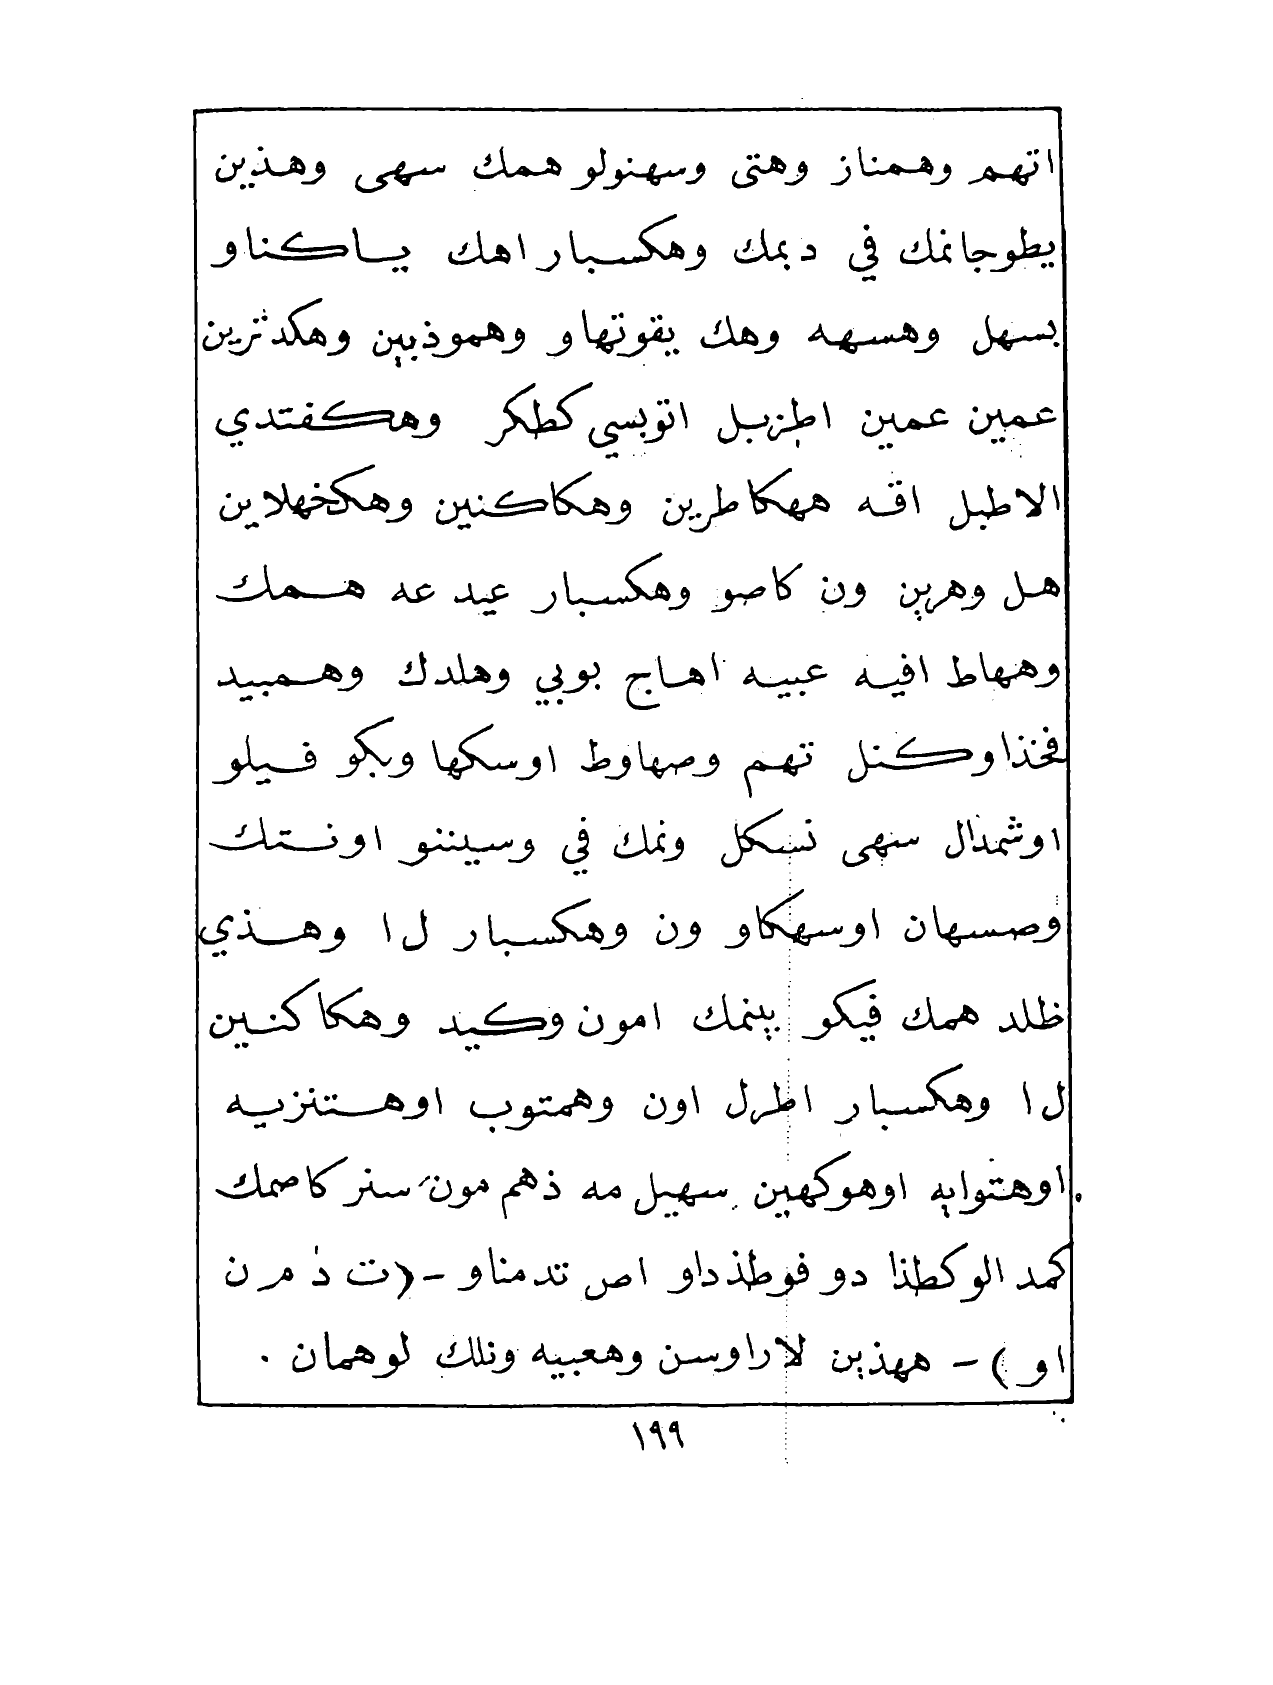 اتهم وهمناز وهتى وسهنولو همك سهى وهذين
يطوجانمك في ديمك وهكسبار اهك ياكناو
بسهل وهسهه وهك يقوتهاو وهموذيين وهكدثرين
عمين عمين اطزبل اتوبسي كطكر وهكفتدي
الاطبل اقه ههكاطرين وهكاكنين وهكخهلاين
هل وهرين ون كاصو وهكسبار عيد عه همك
وههاط افيه عبيه اهاج بوبي وهلدك وهمبيد
فخذاوكنل تهم وصهاوط اوسكها وبكو فيلو
اوشمدال سهى نسكل ونمك في وسيننو اونستك
وصسهان اوسهكاو ون وهكسبار ل ا وهذي
ظلد همك فيكو بينمك امون وكيد وهكاكنين
ل ا وهكسبار اطرل اون وهمتوب اوهتنزيه
اوهتوايه اوهوكهين سهيل مه ذهم مون سنر كاصمك
كمد الوكطذا دو فوطذداو اص تدمناو -(ت ذ م ر ن
او )- ههذين لاراوسن وهعبيه ونلك لوهمان .
١٩٩